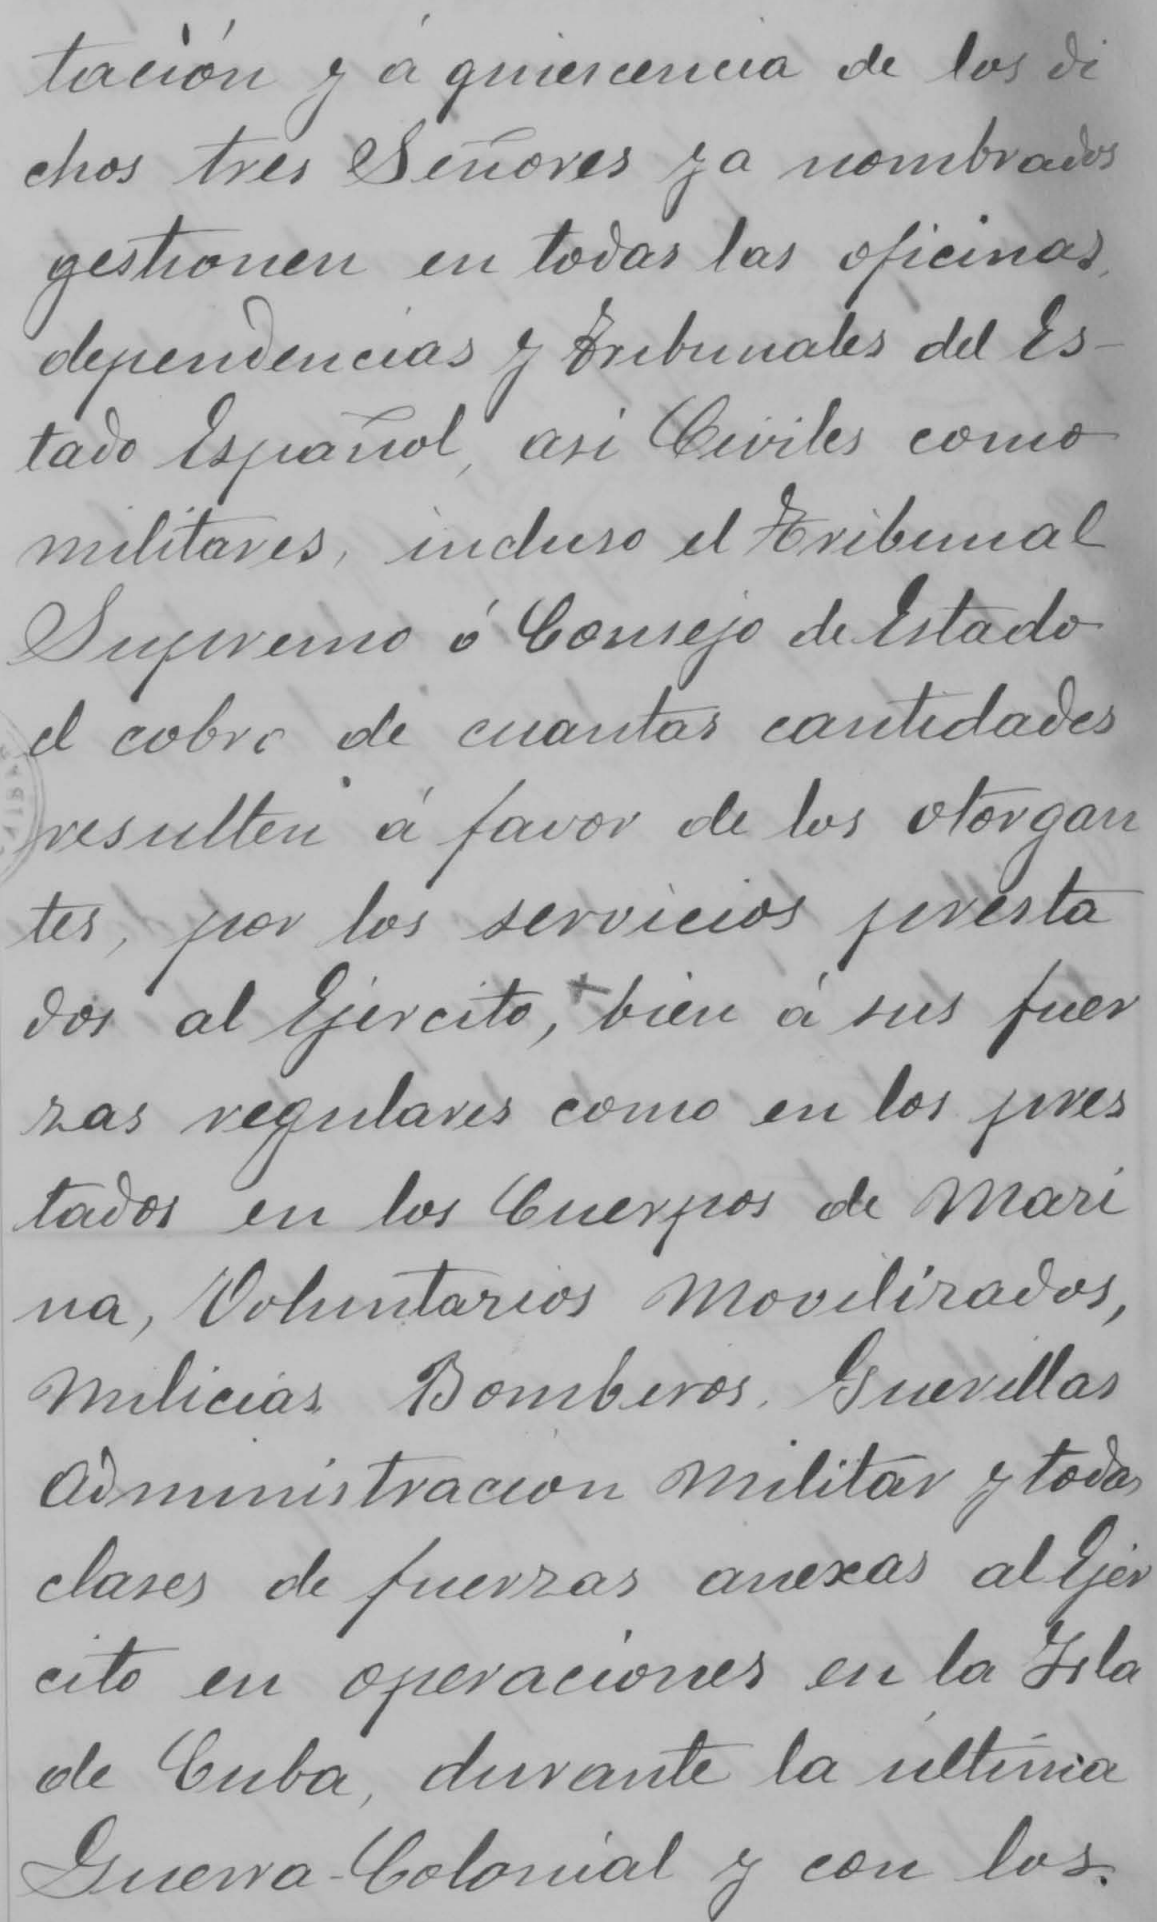 tación y á quiescencia de los di
chos tres Señores ya nombrados
gestionen en todas las oficinas,
dependencias y Tribunales del Es-
tado Español, asi Civiles como
militares, incluso el Tribunal
Supremo ó Consejo de Estado
el cobro de cuantas cantidades
resulten á favor de los otorgan
tes, por los servicios presta
dos al Ejercito, bien á sus fuer
zas regulares como en los pres
tados en los Cuerpos de Mari
na, Voluntarios Movilizados,
Milicias Bomberos. Guerillas
Administracion Militar y todas
clases de fuerzas anexas al Ejér
cito en operaciones en la Isla
de Cuba, durante la ultima
Guerra-Colonial y con los.